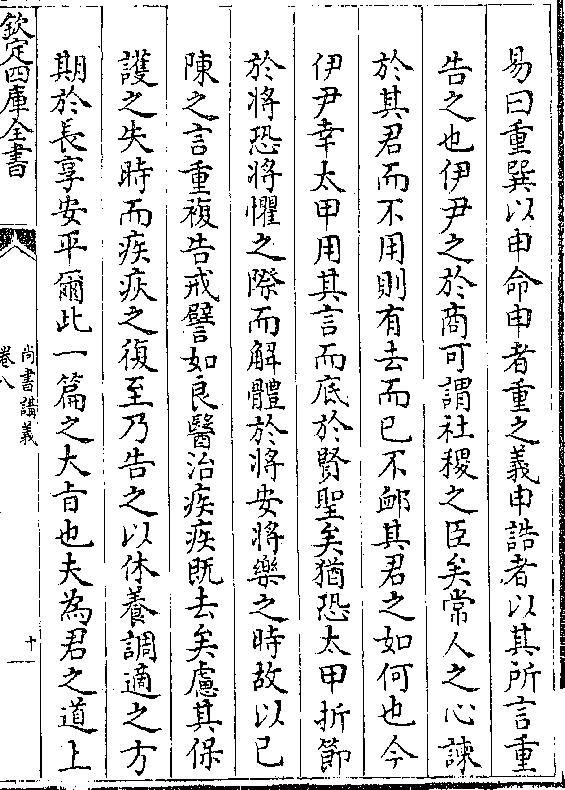 易曰重巽以申命申者重之義申誥者以其所言重
告之也伊尹之於商可謂社稷之臣矣常人之心諫
於其君而不用則有去而已不䘏其君之如何也今
伊尹幸太甲用其言而底於賢聖矣猶恐太甲折節
於將恐將懼之際而解體於將安將樂之時故以已
陳之言重複告戒譬如良醫治疾疾既去矣慮其保
護之失時而疾疢之復至乃告之以休養調適之方
期於長享安平爾此一篇之大㫖也夫為君之道上
欽定四庫全書
尚書講義
卷八
十